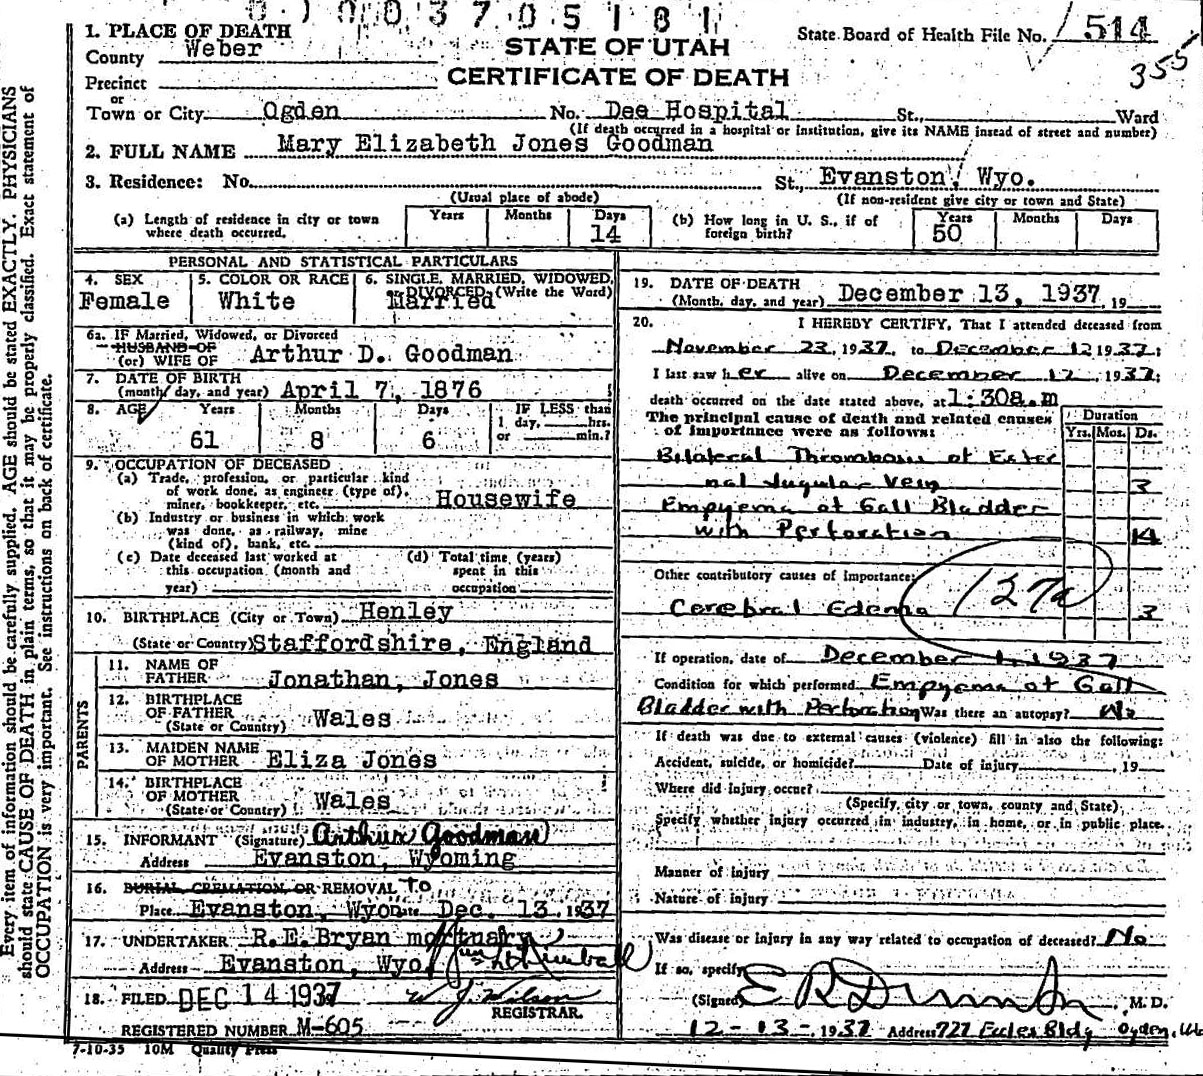 0 1 0 0 3 7 0 5 1 8 1
1. PLACE OF DEATH
County Weber
STATE OF UTAH
CERTIFICATE OF DEATH
State Board of Health File No. 514
355
Precinct
or
Town or City Ogden No. Dee Hospital St., Ward
(If death occurred in a hospital or institution, give its NAME instead of street and number)
2. FULL NAME Mary Elizabeth Jones Goodman
3. Residence: No. St., Evanston, Wyo.
(Usual place of abode) (If non-resident give city or town and State)
(a) Length of residence in city or town where death occurred. Years Months Days 14
(b) How long in U. S., if of foreign birth? Years 50 Months Days
PERSONAL AND STATISTICAL PARTICULARS
4. SEX Female
5. COLOR OR RACE White
6. SINGLE, MARRIED, WIDOWED, or DIVORCED (Write the Word) Married
6a. IF Married, Widowed, or Divorced
HUSBAND OF
(or) WIFE OF Arthur D. Goodman
7. DATE OF BIRTH
(month, day, and year) April 7, 1876
8. AGE Years 61 Months 8 Days 6 IF LESS than 1 day, hrs. or min.?
9. OCCUPATION OF DECEASED
(a) Trade, profession, or particular kind
of work done, as engineer (type of),
miner, bookkeeper, etc. Housewife
(b) Industry or business in which work
was done, as railway, mine
(kind of), bank, etc.
(c) Date deceased last worked at
this occupation (month and
year)
(d) Total time (years)
spent in this
occupation
10. BIRTHPLACE (City or Town) Henley
(State or Country) Staffordshire, England
PARENTS
11. NAME OF
FATHER Jonathan, Jones
12. BIRTHPLACE
OF FATHER Wales
(State or Country)
13. MAIDEN NAME
OF MOTHER Eliza Jones
14. BIRTHPLACE
OF MOTHER Wales
(State or Country)
15. INFORMANT (Signature) Arthur Goodman
Address Evanston, Wyoming
16. BURIAL CREMATION, OR REMOVAL to
Place Evanston, Wyo Date Dec. 13, 1937
17. UNDERTAKER R.E.Bryan mortuary
Address Evanston, Wyo. Kimball
18. FILED DEC 14 1937 W. J. Wilson
REGISTRAR.
REGISTERED NUMBER M-605
7-10-35 10M Quality Press
19. DATE OF DEATH
(Month, day, and year) December 13, 1937, 19
20. I HEREBY CERTIFY, That I attended deceased from
November 23, 1937, to December 12 1937;
I last saw her alive on December 12, 1937;
death occurred on the date stated above, at 1:30a.m
The principal cause of death and related causes
of importance were as follows:
Duration
Yrs. Mos. Ds.
Bilateral Thrombosis of Exter
nal Jugular Vein 3
Empyema of Gall Bladder
with Perforation 14
Other contributory causes of importance:
127a
Cerebral Edema 3
If operation, date of December 1, 1937
Condition for which performed Empyema of Gall
Bladder with Perforation Was there an autopsy? No
If death was due to external causes (violence) fill in also the following:
Accident, suicide, or homicide? Date of injury , 19
Where did injury occur?
(Specify city or town, county and State)
Specify whether injury occurred in industry, in home, or in public place.
Manner of injury
Nature of injury
Was disease or injury in any way related to occupation of deceased? No
If so, specify
(Signed) M. D.
12-13-, 1937 Address 727 Eccles Bldg Ogden,
Every item of information should be carefully supplied. AGE should be stated EXACTLY. PHYSICIANS
should state CAUSE OF DEATH in plain terms, so that it may be properly classified. Exact statement of
OCCUPATION is very important. See instructions on back of certificate.